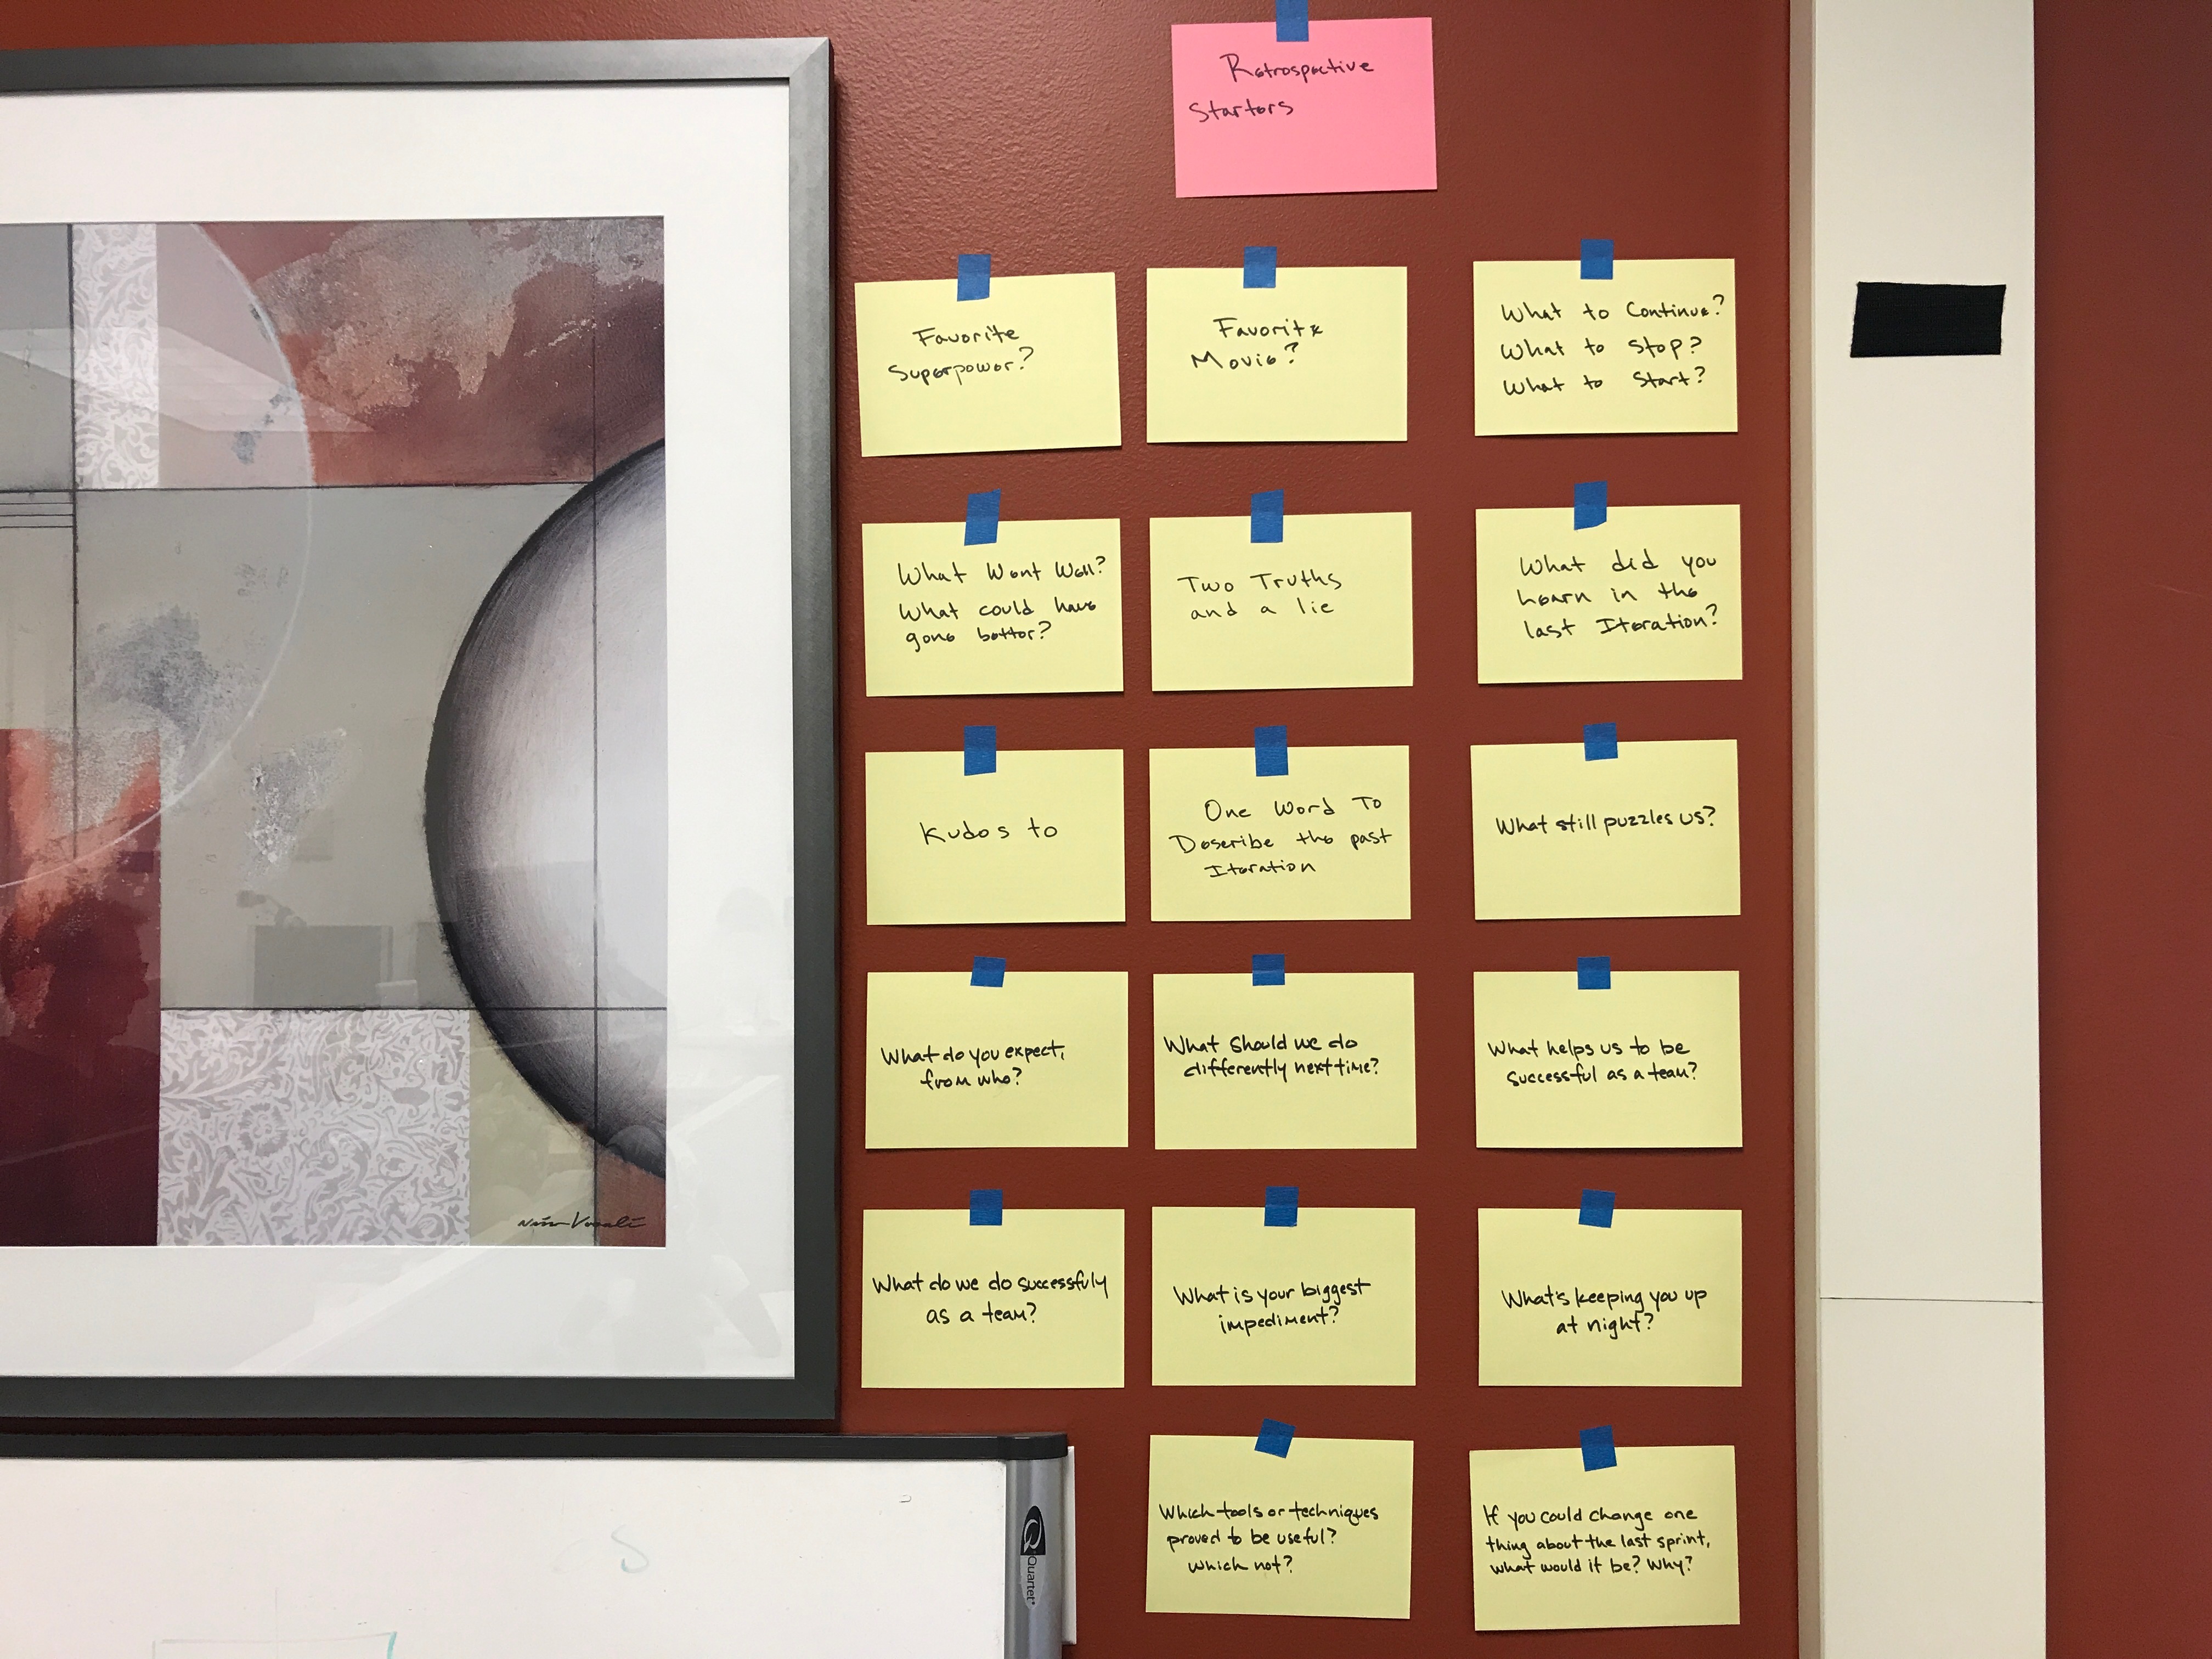 Retrospective
Starters
Favorite
Superpower?
Favorite
Movie?
What to Continue?
What to Stop?
What to Start?
What Went Well?
What could have
gone better?
Two Truths
and a lie
What did you
learn in the
last Iteration?
Kudos to
One Word To
Describe the past
Iteration
What still puzzles us?
What do you expect,
from who?
What should we do
differently next time?
What helps us to be
successful as a team?
What do we do successfuly
as a team?
What is your biggest
impediment?
What's keeping you up
at night?
Which tools or techniques
proved to be useful?
Which not?
If you could change one
thing about the last sprint,
what would it be? Why?
Quartet